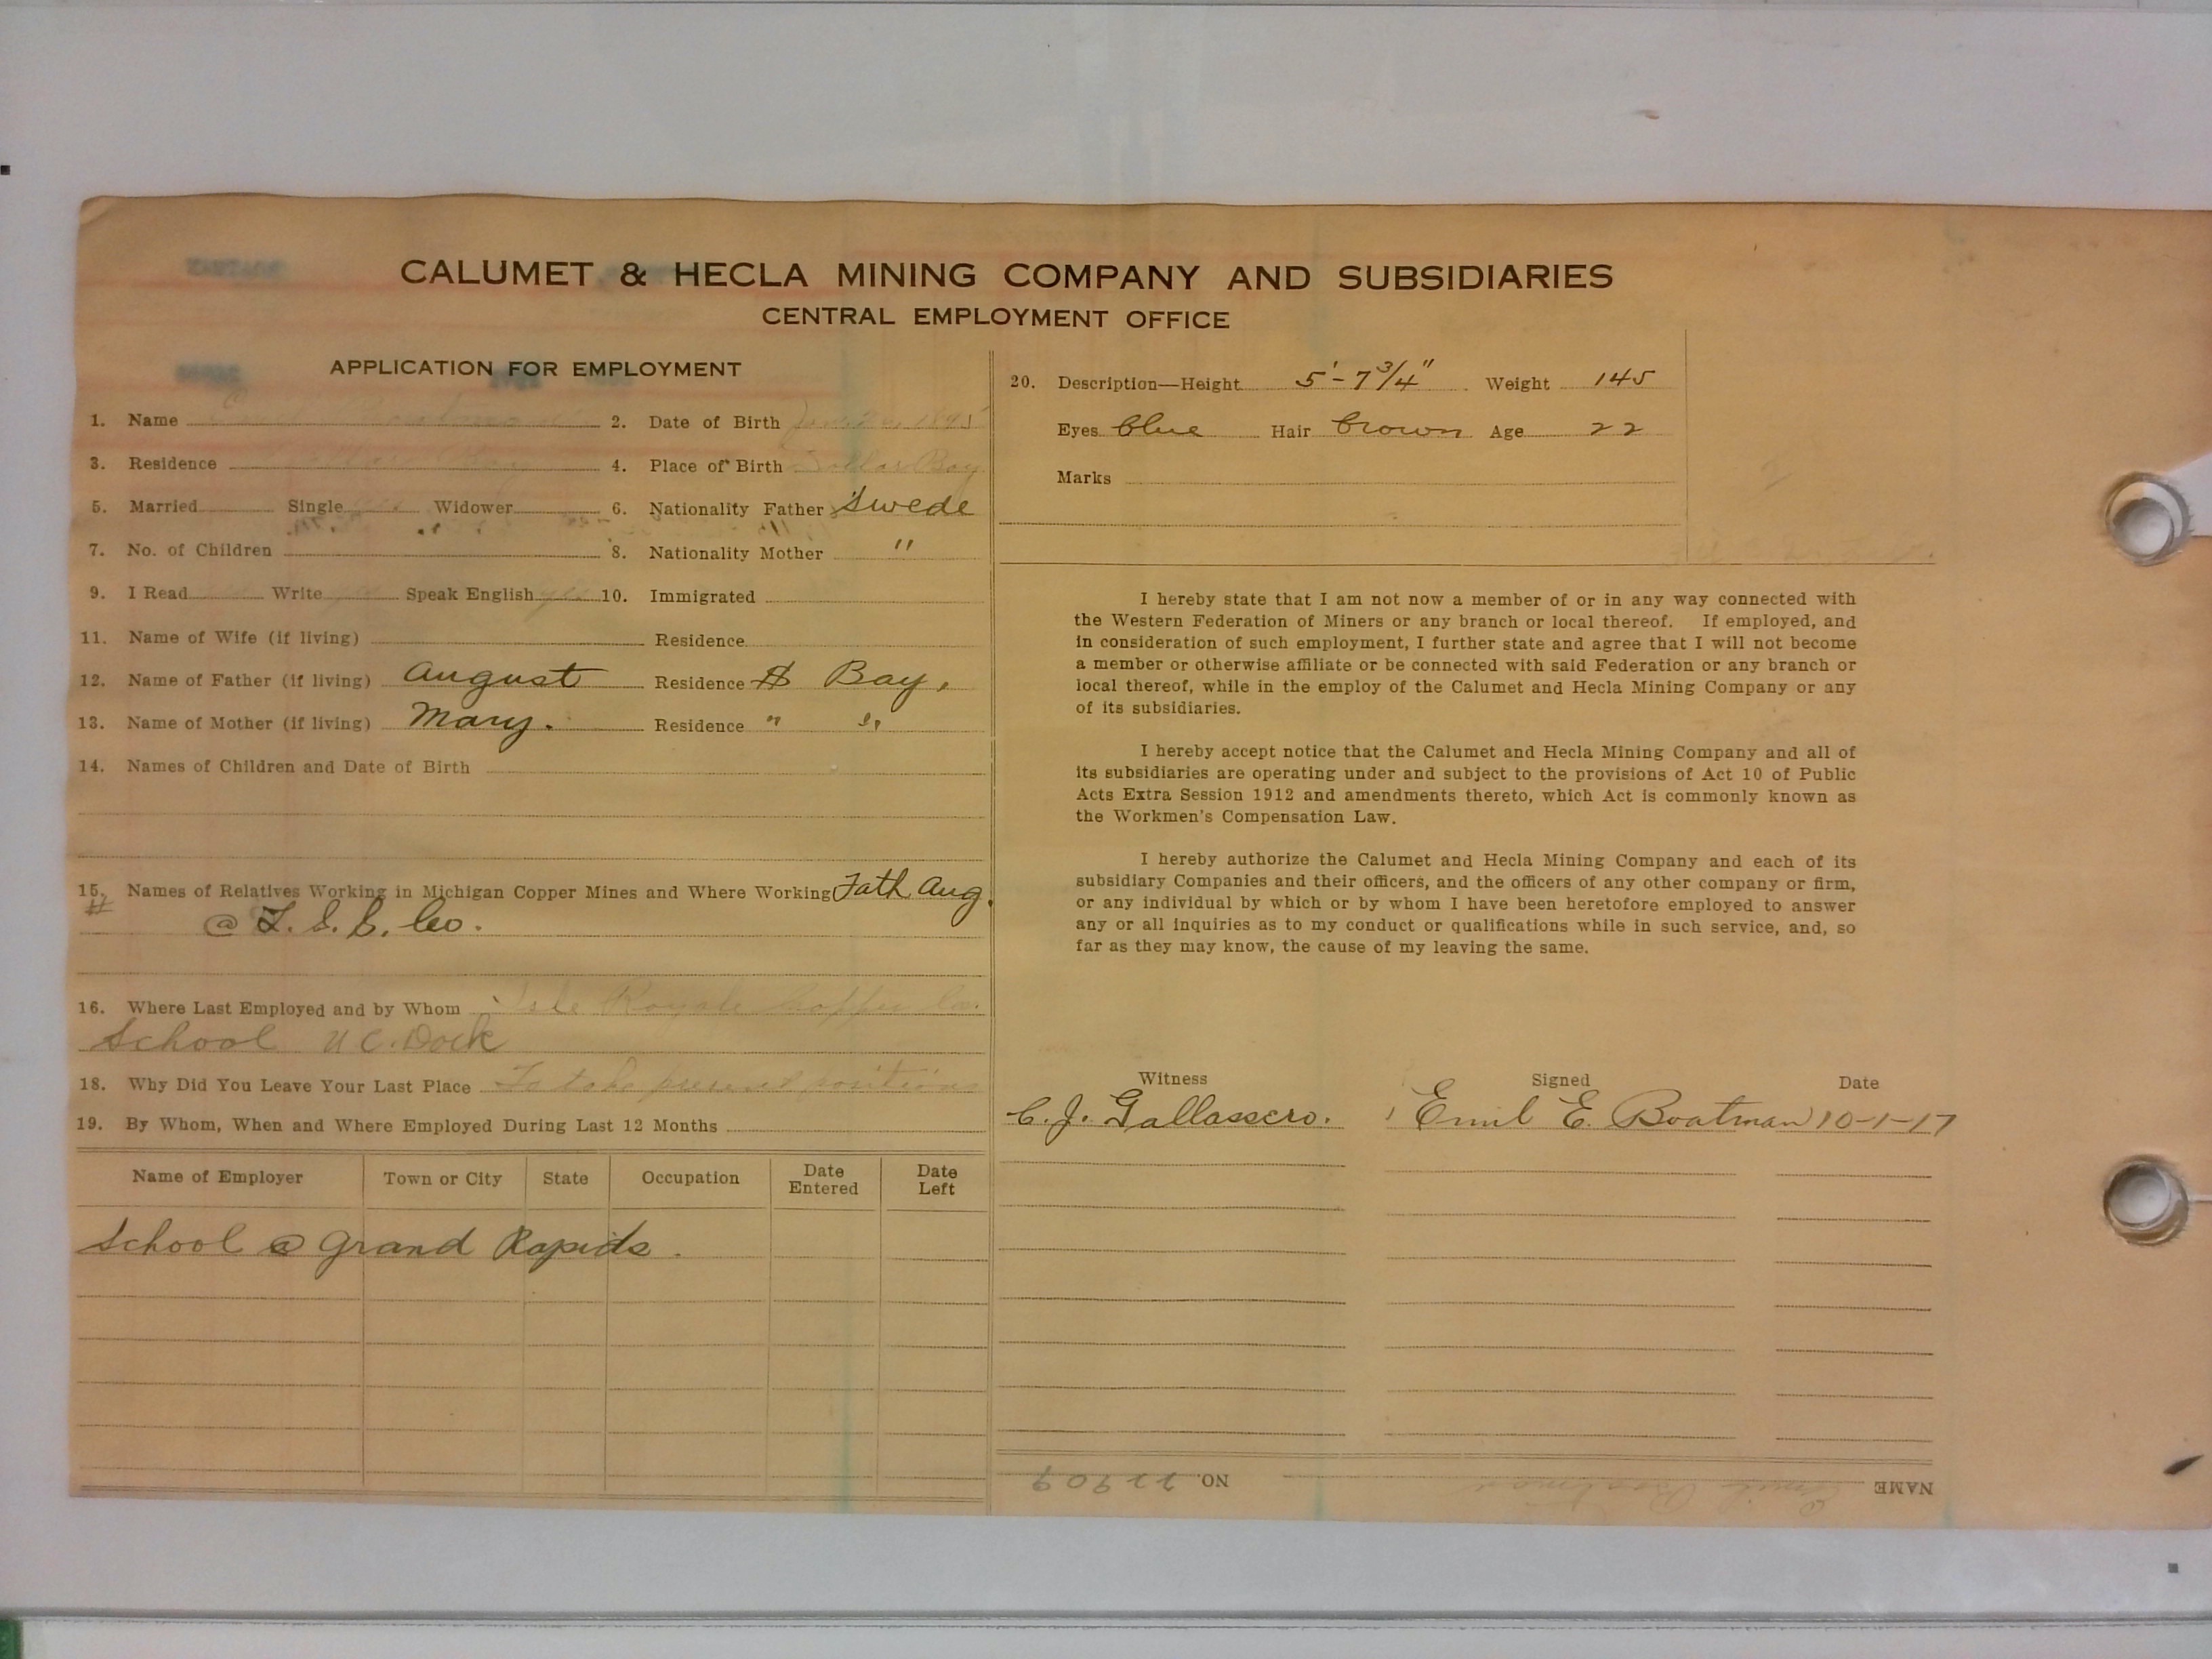 CALUMET & HECLA MINING COMPANY AND SUBSIDIARIES
CENTRAL EMPLOYMENT OFFICE
APPLICATION FOR EMPLOYMENT
1. Name Emil Boatman 2. Date of Birth 1895
3. Residence Dollar Bay 4. Place of Birth Dollar Bay
5. Married Single Widower 6. Nationality Father Swede
7. No. of Children 8. Nationality Mother "
9. I Read Write Speak English yes 10. Immigrated
11. Name of Wife (if living) Residence
12. Name of Father (if living) August Residence $ Bay.
13. Name of Mother (if living) Mary. Residence " "
14. Names of Children and Date of Birth
15. Names of Relatives Working in Michigan Copper Mines and Where Working Fath Aug.
@ L. S. Co.
16. Where Last Employed and by Whom Isle Royale Copper Co.
School U C. Dock
18. Why Did You Leave Your Last Place To take present position
19. By Whom, When and Where Employed During Last 12 Months
Name of Employer Town or City State Occupation Date Entered Date Left
School @ Grand Rapids.
20. Description—Height 5'-7 3/4" Weight 145
Eyes blue Hair brown Age 22
Marks
I hereby state that I am not now a member of or in any way connected with
the Western Federation of Miners or any branch or local thereof. If employed, and
in consideration of such employment, I further state and agree that I will not become
a member or otherwise affiliate or be connected with said Federation or any branch or
local thereof, while in the employ of the Calumet and Hecla Mining Company or any
of its subsidiaries.
I hereby accept notice that the Calumet and Hecla Mining Company and all of
its subsidiaries are operating under and subject to the provisions of Act 10 of Public
Acts Extra Session 1912 and amendments thereto, which Act is commonly known as
the Workmen's Compensation Law.
I hereby authorize the Calumet and Hecla Mining Company and each of its
subsidiary Companies and their officers, and the officers of any other company or firm,
or any individual by which or by whom I have been heretofore employed to answer
any or all inquiries as to my conduct or qualifications while in such service, and, so
far as they may know, the cause of my leaving the same.
Witness Signed Date
C. J. Gallassero. Emil E. Boatman 10-1-17
NAME Emil Boatman NO. 22909